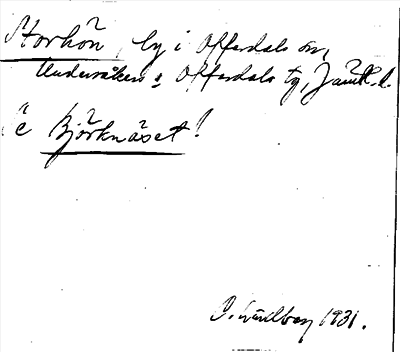 Storhön, by i Offerdals sn,
Undersåkers o Offerdals tg, Jämtl. l.
Se Björknäset!
1931.